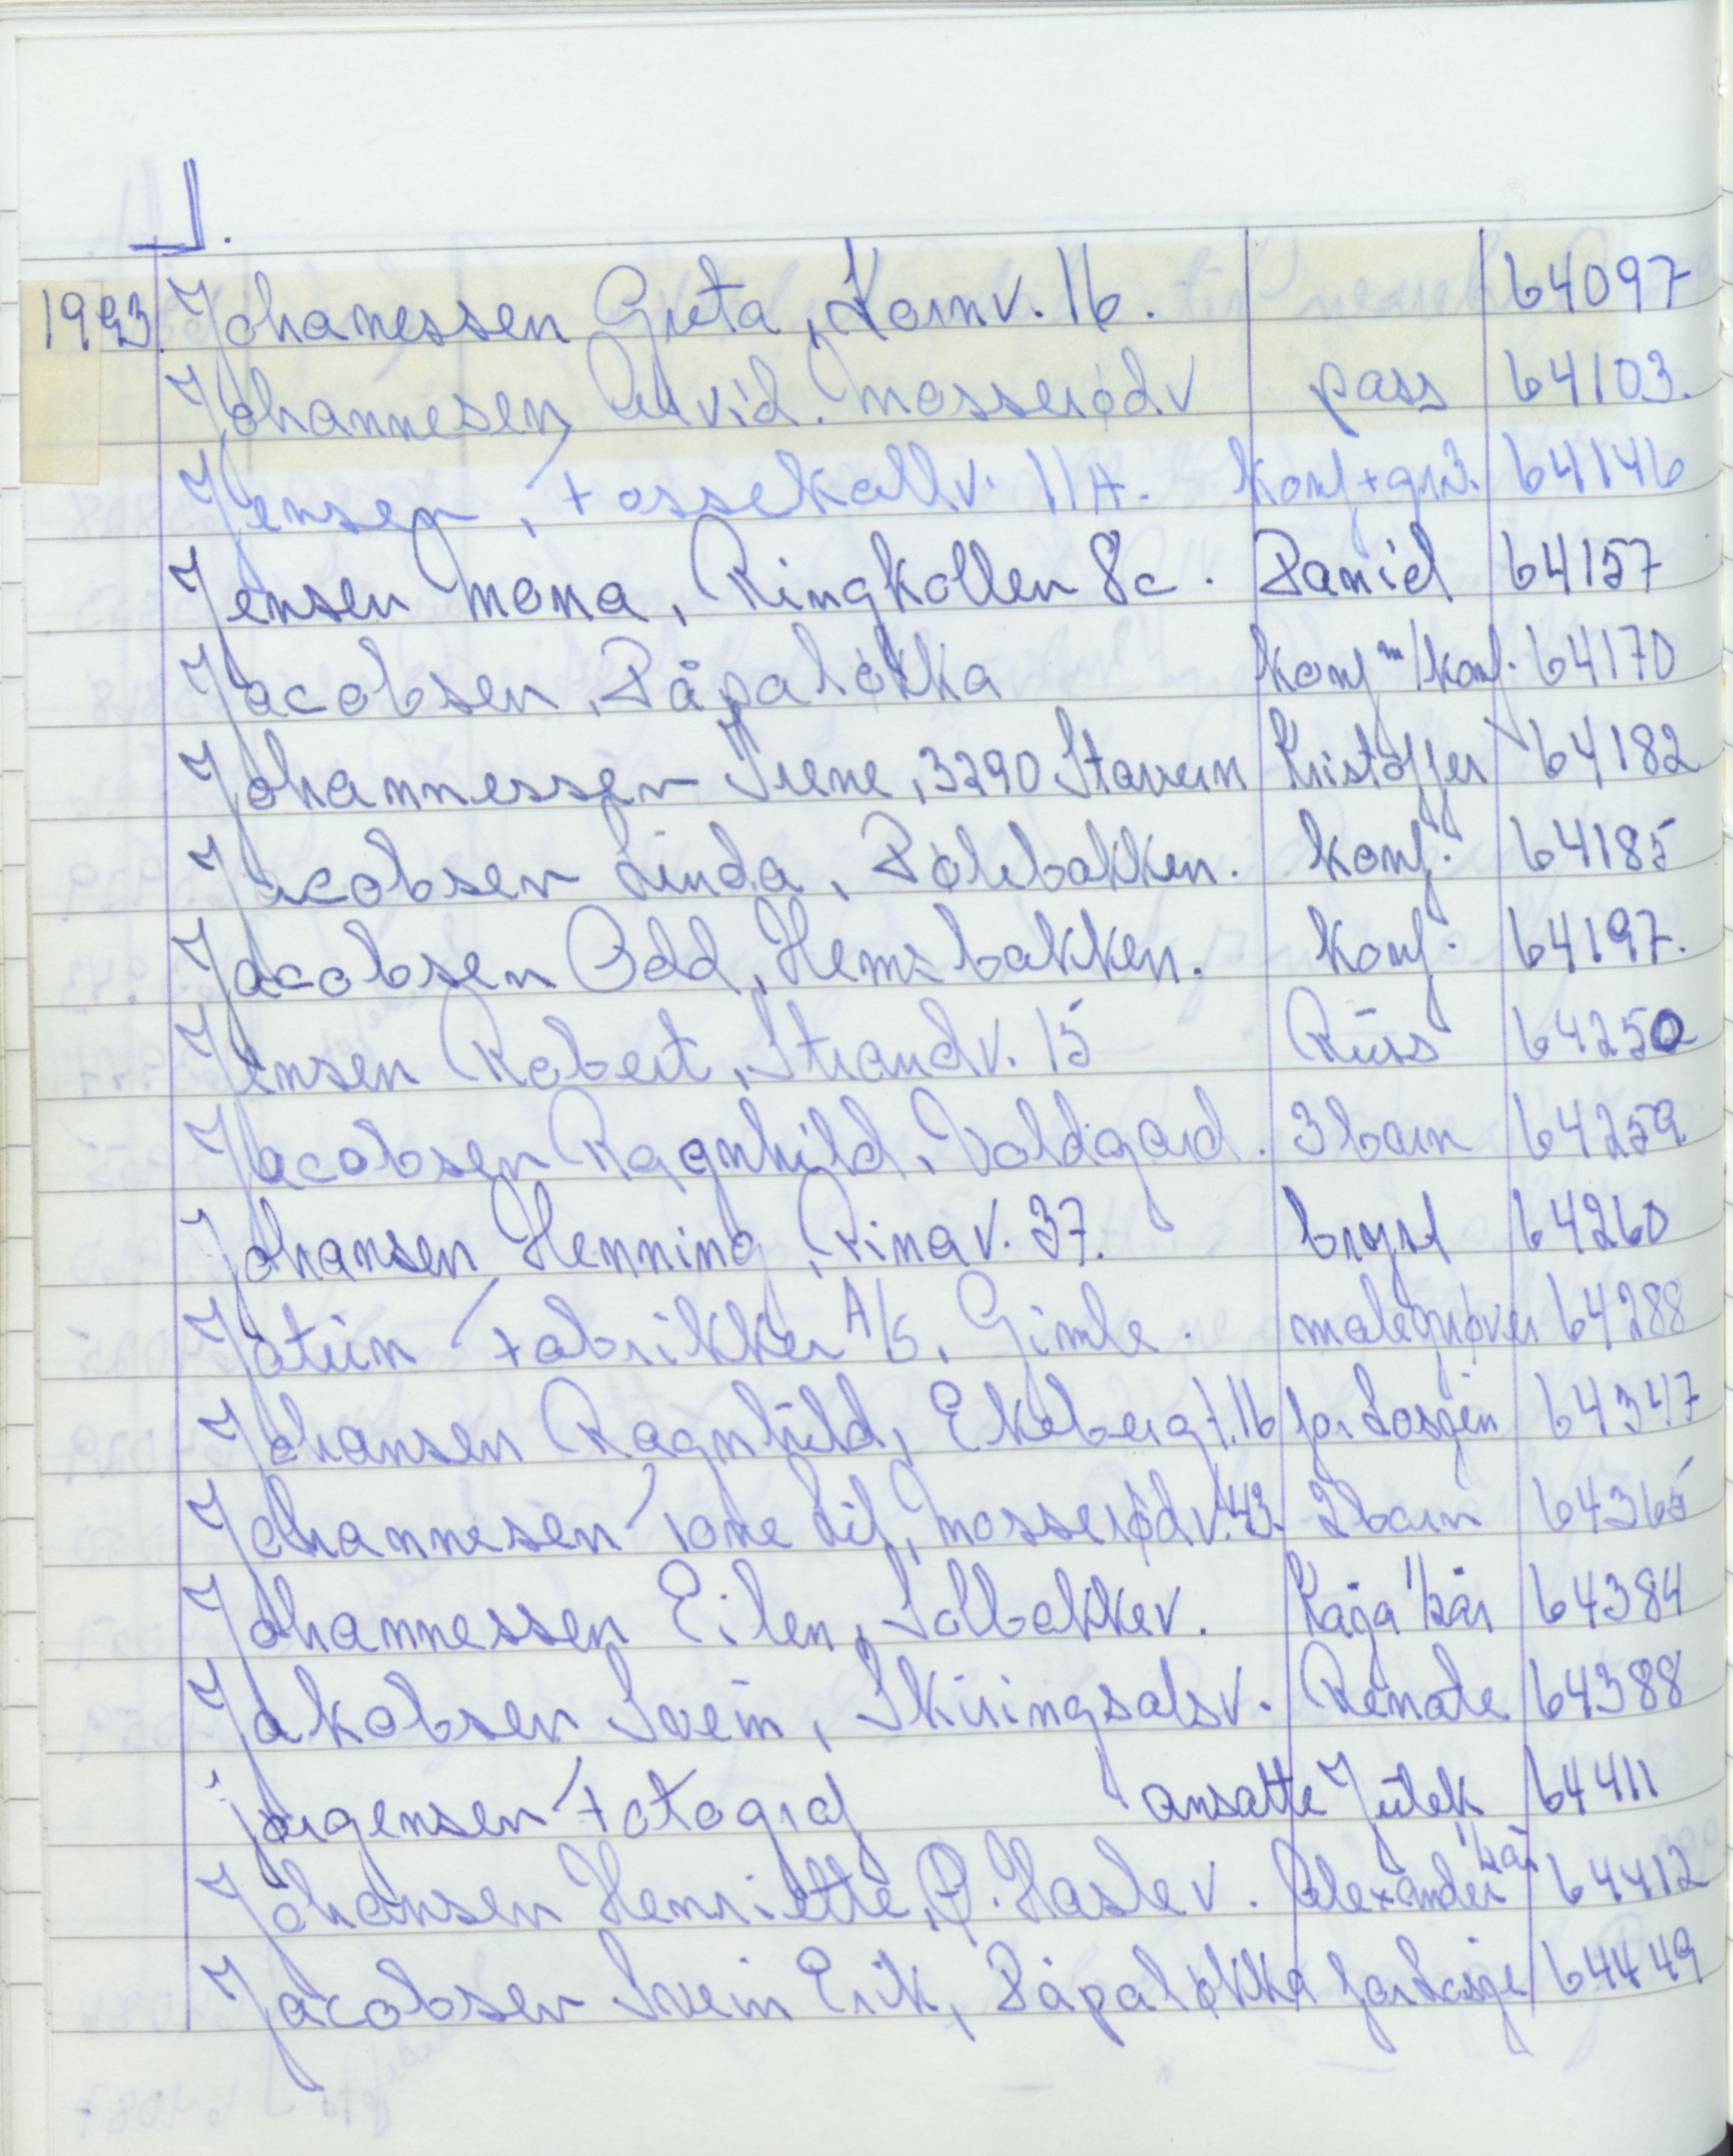 J.
1993. Johanessen Greta, Kornv. 16. 64097
Johannesen Arvid. Mosserødv pass 64103.
Jensen, Fossekallv. 11A. konf + gr.3. 64146
Jensen Mona, Ringkollen 8c. Daniel 64157
Jacobsen, Dåpaløkka konf m/konf. 64170
Johannessen Irene, 3290 Stavern Kristoffer 64182
Jacobsen Linda, Dølebakken. konf. 64185
Jacobsen Odd, Hemsbakken. konf. 64197.
Jensen Robert, Strandv. 15 Riis 64250
Jacobsen Ragnhild, Voldgard. 3 barn 64259
Johansen Henning, Rinav. 37. bryst 64260
Jotun Fabrikker A/S, Gimle. maleprøver 64288
Johansen Ragnhild, Ekebergt. 16 for Losjen 64347
Johannesen Tone Lil, Mosserødv. 43. 2 barn 64365
Johannessen Eilen, Solbakkev. Kaja 1/2år 64384
Jakobsen Svein, Skiringsalsv. Renate 64388
jørgensen Fotograf ansatte Jutek 64411
Johansen Henriette, P. Haslev. Alexander 1/2år 64412
Jacobsen Svein Erik, Dåpaløkka for Losje 64449